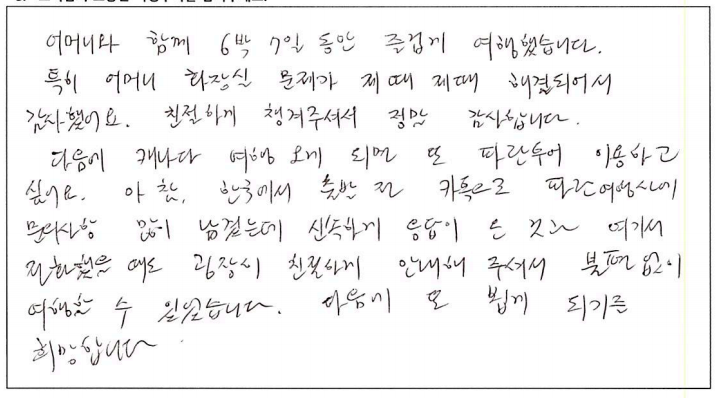 어머니와 함께 6박 7일 동안 즐겁게 여행했습니다.
특히 어머니 화장실 문제가 제때 제때 해결되어서
감사했어요. 친절하게 챙겨주셔서 정말 감사합니다.
다음에 캐나다 여행 오게 되면 또 파란투어 이용하고
싶어요. 아 참, 한국에서 출발 전 카톡으로 파란여행사에
문의사항 많이 남겼는데 신속하게 응답이 온 것과 여기서
전화했을 때도 굉장히 친절하게 안내해 주셔서 불편없이
여행할 수 있었습니다. 다음에 또 뵙게 되기를
희망합니다